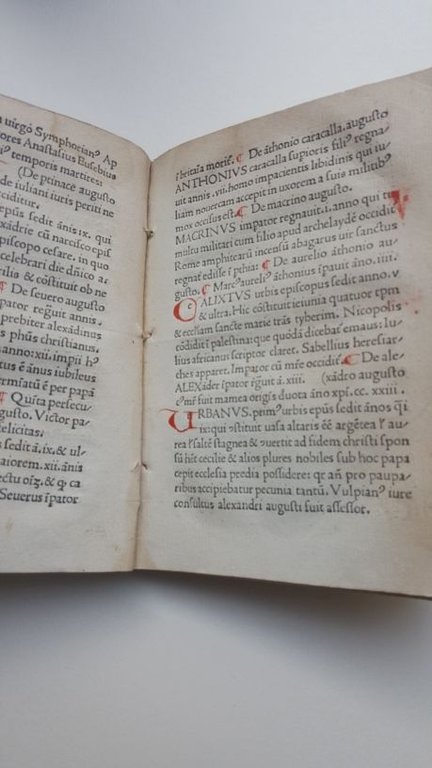 a uirgo Symphorianꝰ Ap
ores Anastasius Eusebius
temporis martires:
(De ptinace augusto
de iuliani iuris periti ne
ciditur.
epus sedit ãnis ix. qui
xidrie cũ narciso epis
episcopo cesare. in quo
celebrari die dñico a
lis & cõstituit ob ne
De seuero augusto
pator regͫuit annis.
prebiter alexãdinus
phũs christianus.
anno:xii. impii
est ẽ ãnus iubileus
rmatũ ẽ per papã
¶ Quĩta persecu
gusto. Victor pa
felicitas.
s sedit ã.ix.& ul
aiorem.xii.ãnis
ectu oĩʒ.& ꝙ ca
Seuerus ĩpator
ĩ britaĩa moritᷣ. ¶ De ãthonio caracalla.augusto
ANTHONIVS caracalla supioris filiꝰ regna/
uit annis.vii.homo impacientis libidinis qui iu/
liam nouercam accepit in uxorem a suis militibꝰ
mox occisus est. ¶ De macrino augusto.
MACRINVS impator regnauit.i.anno qui tu
multu militari cum filio apud archelaydẽ occidit
Rome amphitearũ incensũ abagarus uir sanctus
regnat edisse ĩ pthia: ¶ De aurelio ãthonio au/
gusto. ¶ Marcꝰ aureliꝰ ãthonius ĩpauit ãno.iiii.
CALIXTVS urbis episcopus sedit anno.v
& ultra. Hic cõstituit ieiunia quatuor tpm
& ecclìam sancte marie trãs tyberim. Nicopolis
cõdidit ĩ palestina:que quõdã dicebat emaus: Iu
lius africanus scriptor claret. Sabellius heresiar/
ches apparet. Impator cũ mre occidit. ¶ De ale/
ALEXãder ĩpator rĩguit ã.xiii. (xãdro augusto
mr̃ fuit mamea origĩs duota ãno xpi.cc.xxiii.
VRBANVS.primꝰ urbis epus sedit ãnos qĩ
ixi qui ꝯstituit uasa altaris eẽ argẽtea ĩ au/
rea ĩ saltẽ stagnea & ꝯuertit ad fidem christi spon
sũ hẽt cecilie & alios plures nobiles sub hoc papa
cepit ecclesia predia possidere: qr añ pro paupa/
ribus accipiebatur pecunia tantũ. Vulpianꝰ iure
consultus alexandri augusti fuit assessor.